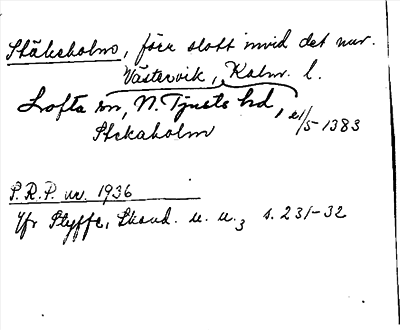 Stäkeholm, förr slott invid det nuv.
Västervik, Kalm. l.
Lofta sn, N. Tjusts hd, 21/5 1383
Stekaholm
P.R.P. nr. 1936
Jfr Styffe, Skand. u. u.3 s. 231-32